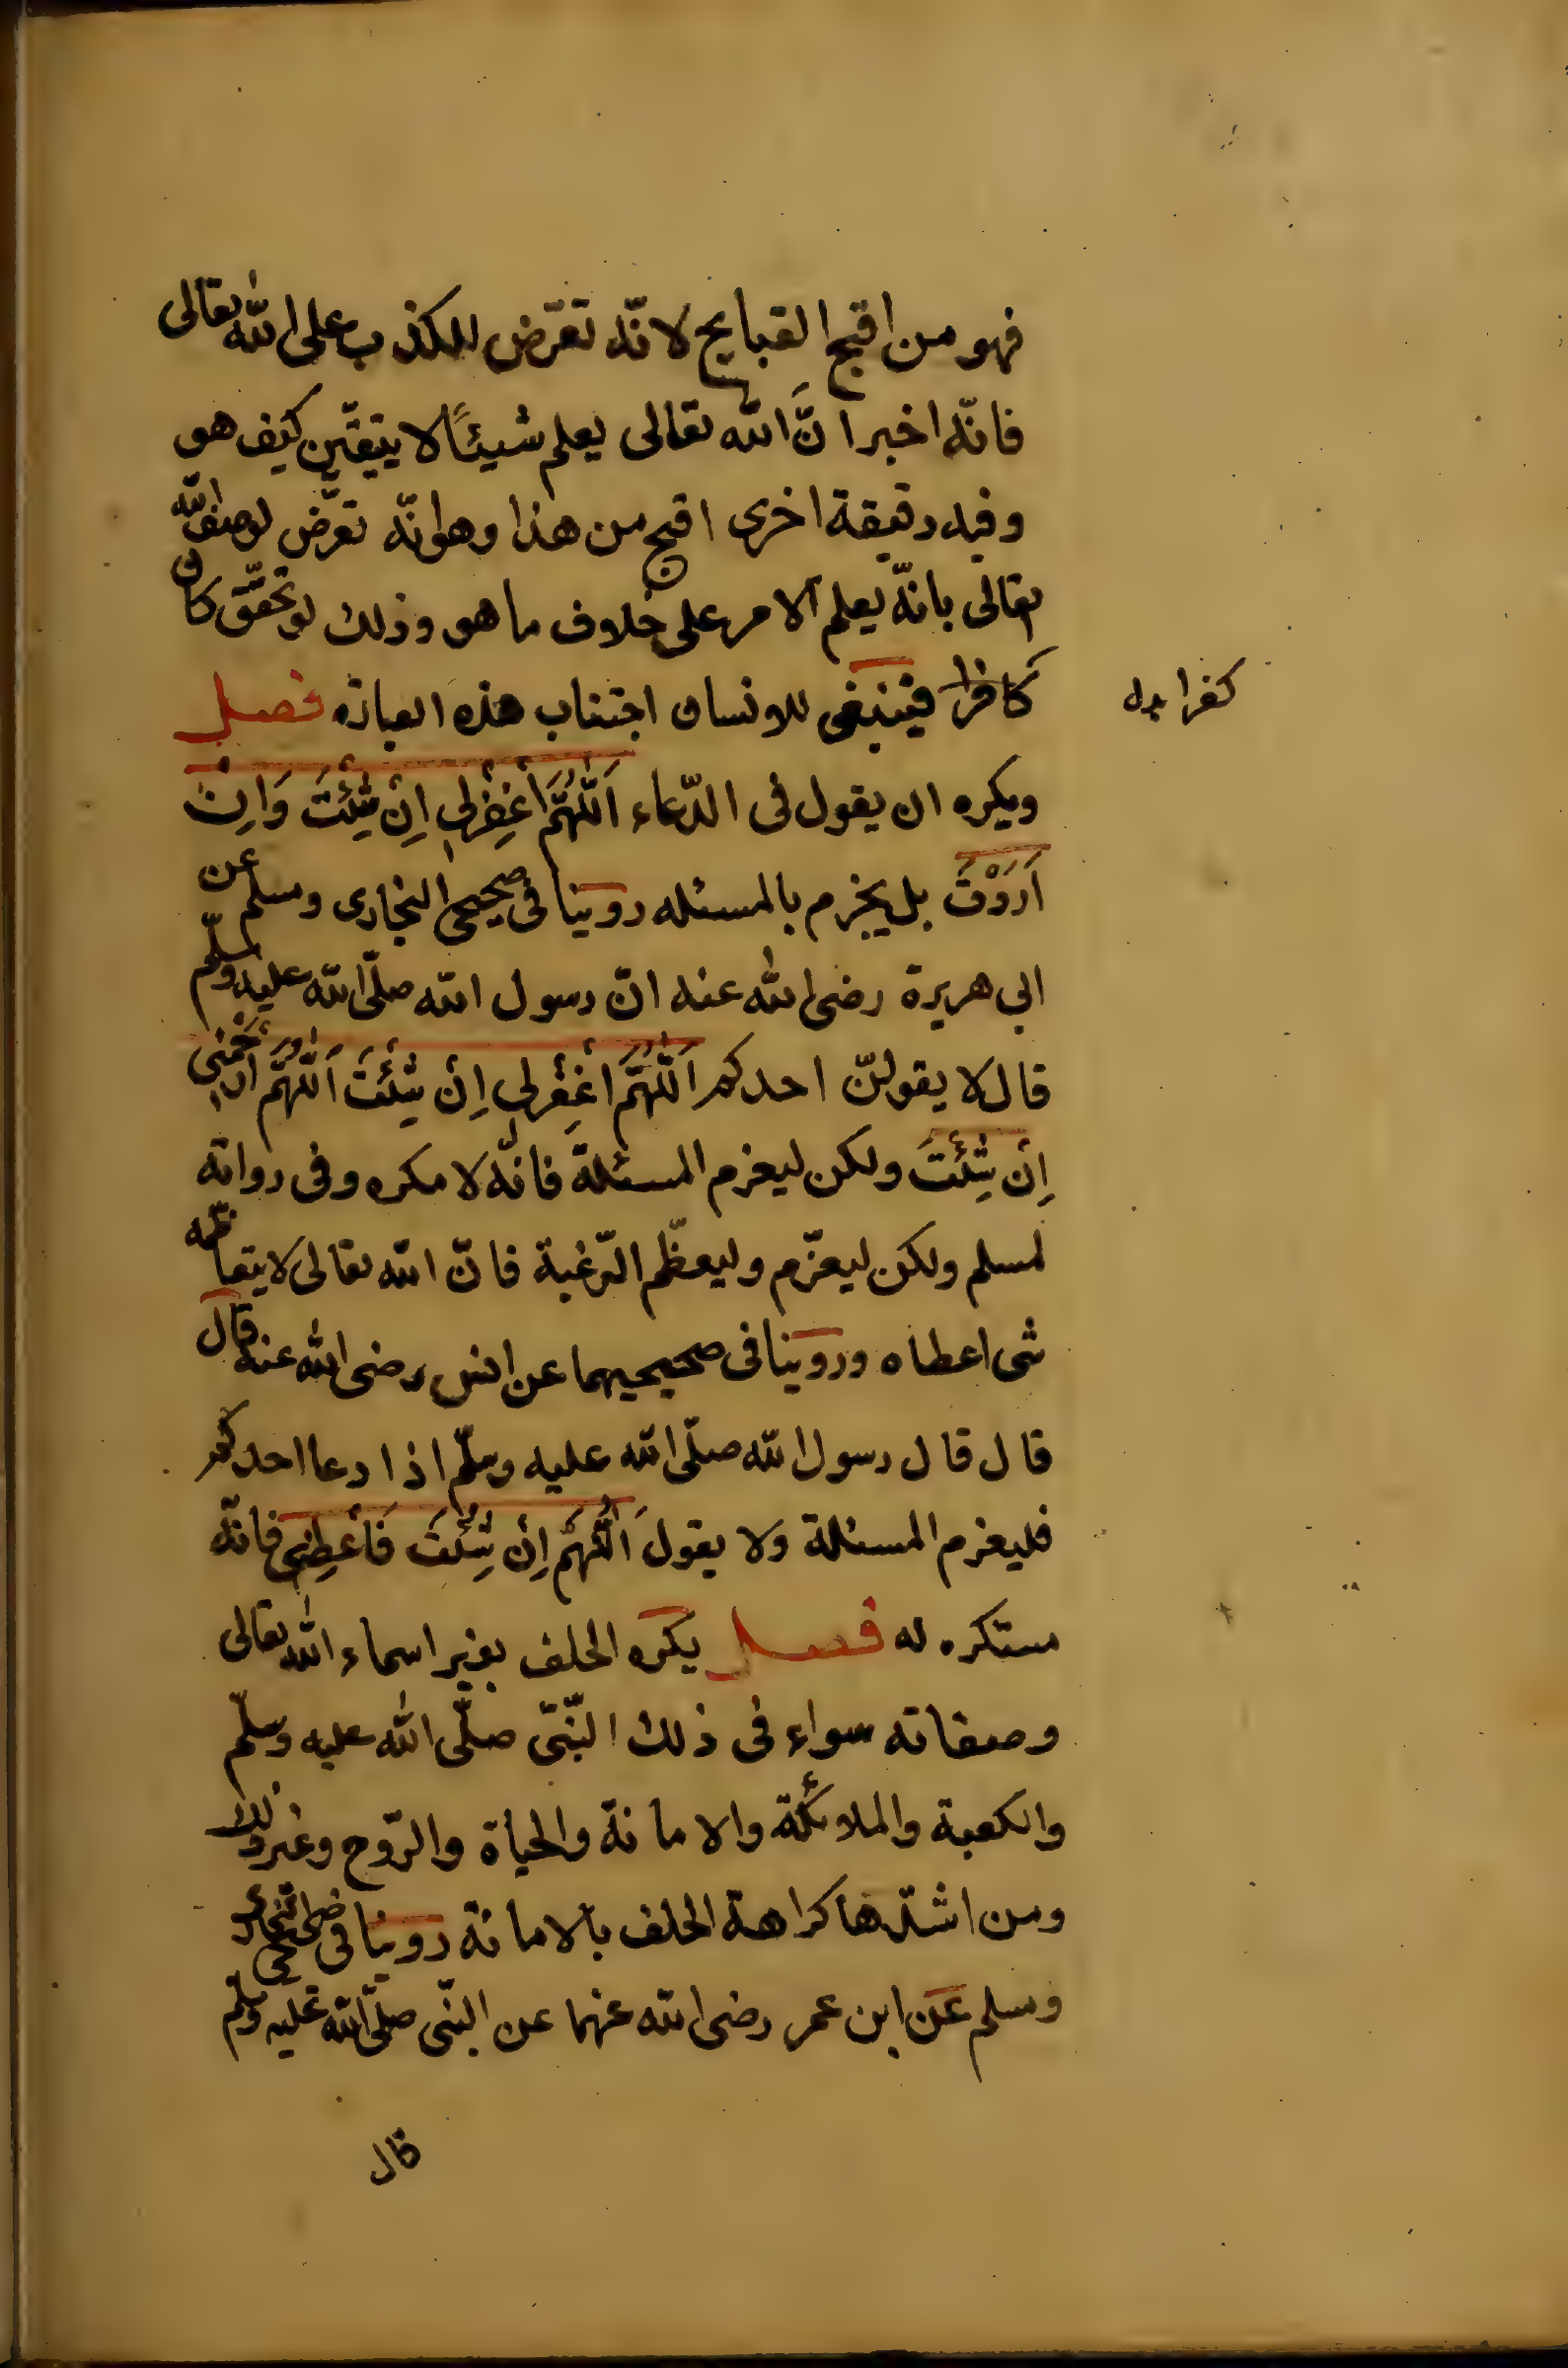 فهو من اقبح القبايح لانّه تعرّض للكذب على الله تعالى
فانّه اخبر انَّ الله تعالى يعلم شيئًا لا يتيقّن كيف هو
وفيه دقيقة اخرى اقبح من هذا وهو انّه تعرّض لوصف الله
تعالى بانّه يعلم الامر على خلاف ما هو وذلك لو تحقّق كان
كافرا فينبغى للانسان اجتناب هذه العبارة فصل
كفرا بدله
ويكره ان يقول فى الدّعاء اَللّٰهُمَّ أغْفِرْلِى اِنْ شِئْتَ وَاِنْ
اَرَدْتَ بل يجزم بالمسئله روينا فى صحيحى البخارى ومسلم عن
ابى هريرة رضى الله عنه انّ رسول الله صلّى الله عليه وسلّم
قال لا يقولنّ احدكم اَللّٰهُمَّ أغْفِرْلِى اِنْ شِئْتَ اَللّٰهُمَّ اْرْحَمْنِى
اِنْ شِئْتَ ولكن ليعزم المسئلة فانّه لا مكره وفى رواية
لمسلم ولكن ليعزّم وليعظّم الرّغبة فانّ الله تعالى لا يتعاظمه
شى اعطاه وروينا فى صحيحيهما عن انس رضى الله عنه قال
قال قال رسول الله صلّى الله عليه وسلّم اذا دعا احدكم
فليعزم المسئلة ولا يقولَ اَللّٰهُمَّ اِنْ شِئْتَ فَأَعْطِنِى فانّه
مستكره له فصل يكره الحلف بغير اسماء الله تعالى
وصفاته سواء فى ذلك النّبىّ صلّى الله عليه وسلّم
والكعبة والملائكة والامانة والحياة والرّوح وغير ذلك
ومن اشدّها كراهة الحلف بالامانة روينا فى صحيحى البخارى
ومسلم عن ابن عمر رضى الله عنهما عن النّبى صلّى الله عليه وسلّم
قال